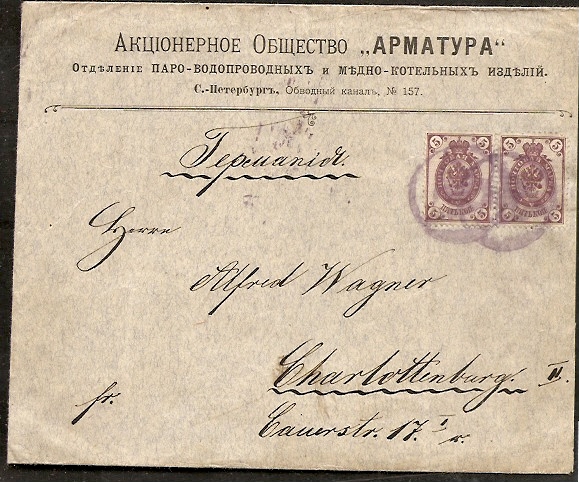 Акціонерное Общество „АРМАТУРА"
Отдѣленіе ПАРО-ВОДОПРОВОДНЫХЪ и МѢДНО-КОТЕЛЬНЫХЪ ИЗДѢЛІЙ.
С.-Петербургъ, Обводный каналъ, № 157.
Германія.
5 5 5 5
5 ПЯТЬ КОП 5 5 ПЯТЬ КОП 5
Herrn
Alfred Wagner
Charlottenburg. II.
fr.
Cauerstr. 17. I r.